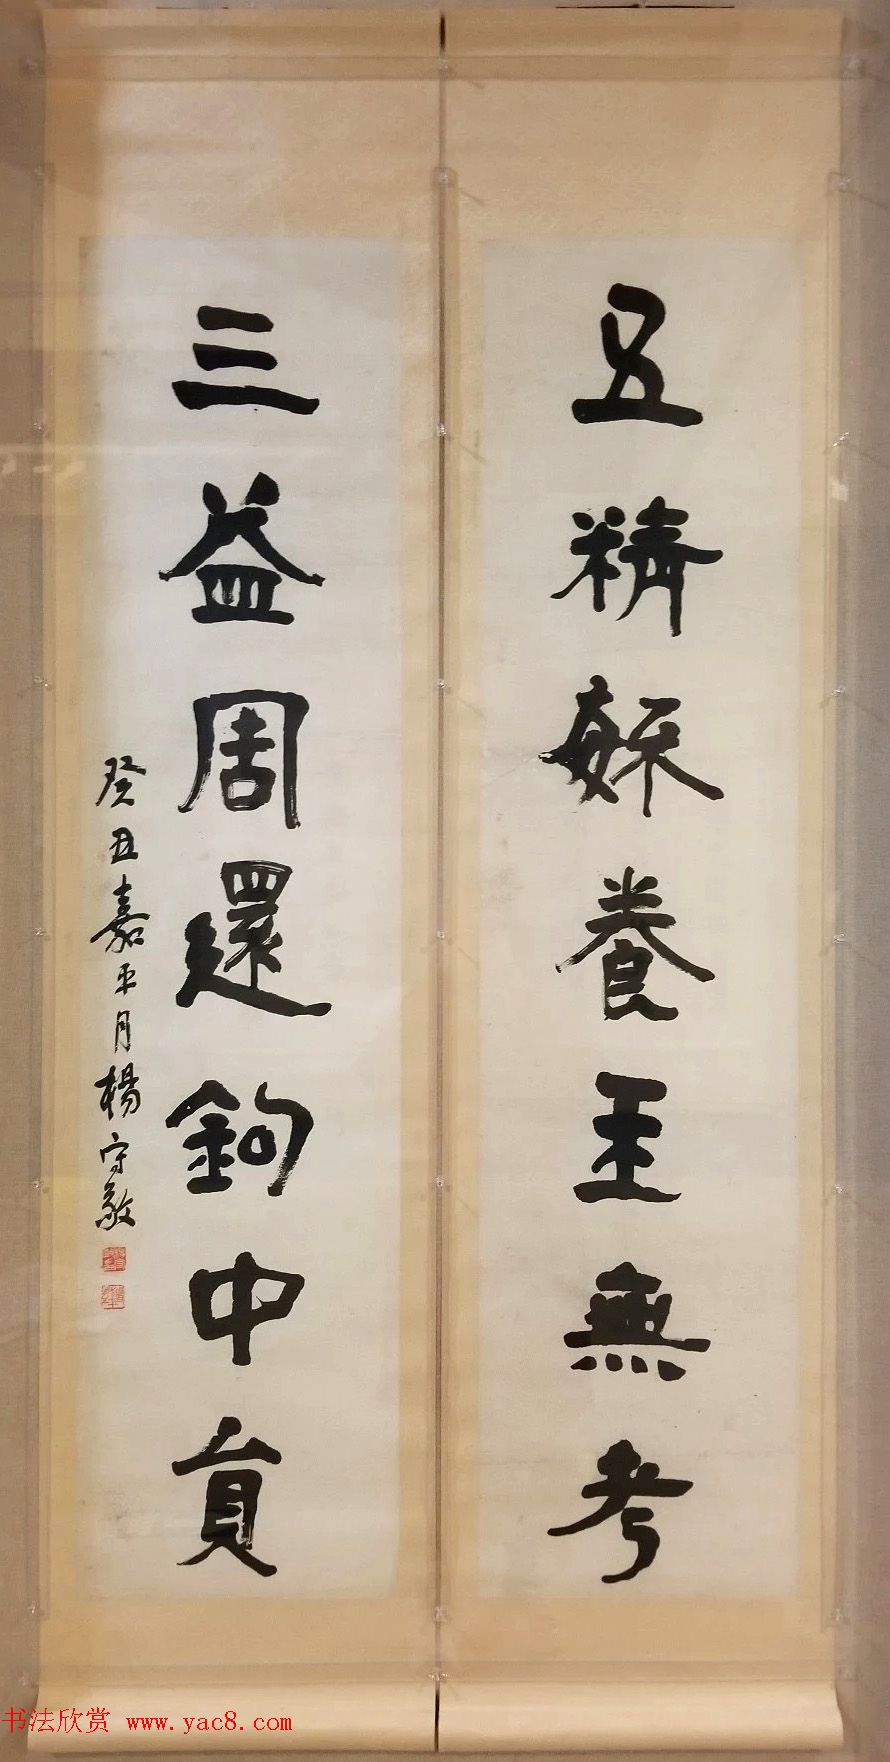 五精養主無考
三益周還鉤中員
癸丑嘉平月楊守敬
书法欣赏 www.yac8.com